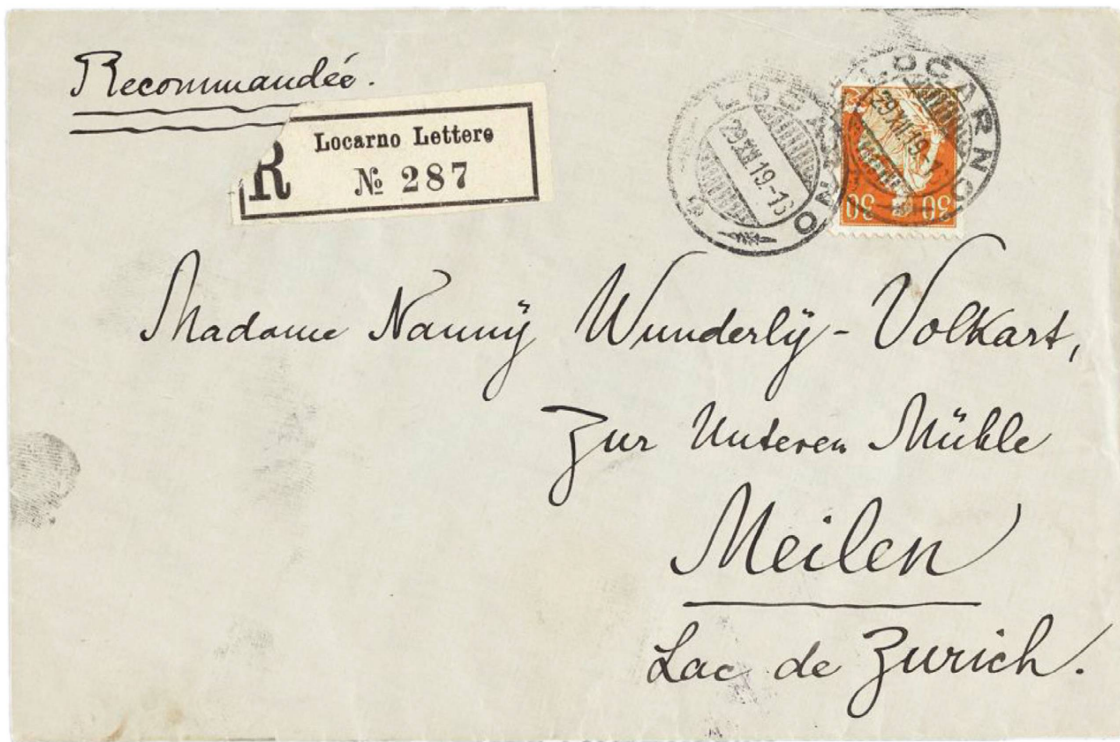 Recommandée.
R
Locarno Lettere
№ 287
LOCARNO
29.XII.19.-16
LOCARNO
29.XII.19.-
50 50
Madame Nanny Wunderly-Volkart,
Zur Unteren Mühle
Meilen
Lac de Zurich.